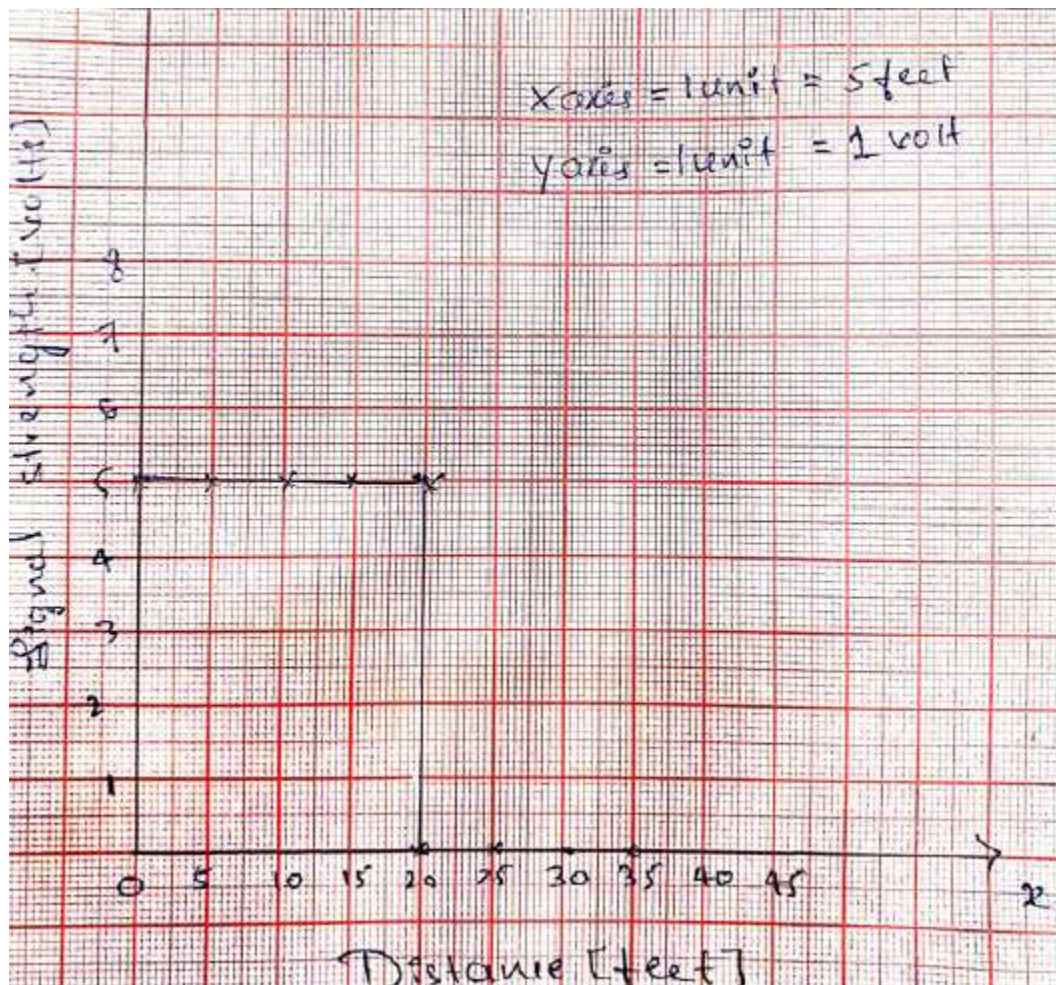 x axis = 1 unit = 5 feet
y axis = 1 unit = 1 volt
Signal strength [volts]
8
7
6
5
4
3
2
1
0 5 10 15 20 25 30 35 40 45
x
Distance [feet]